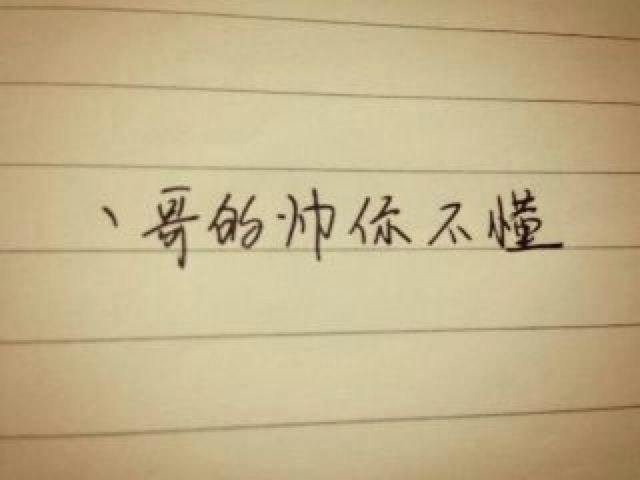 丶哥的帅你不懂